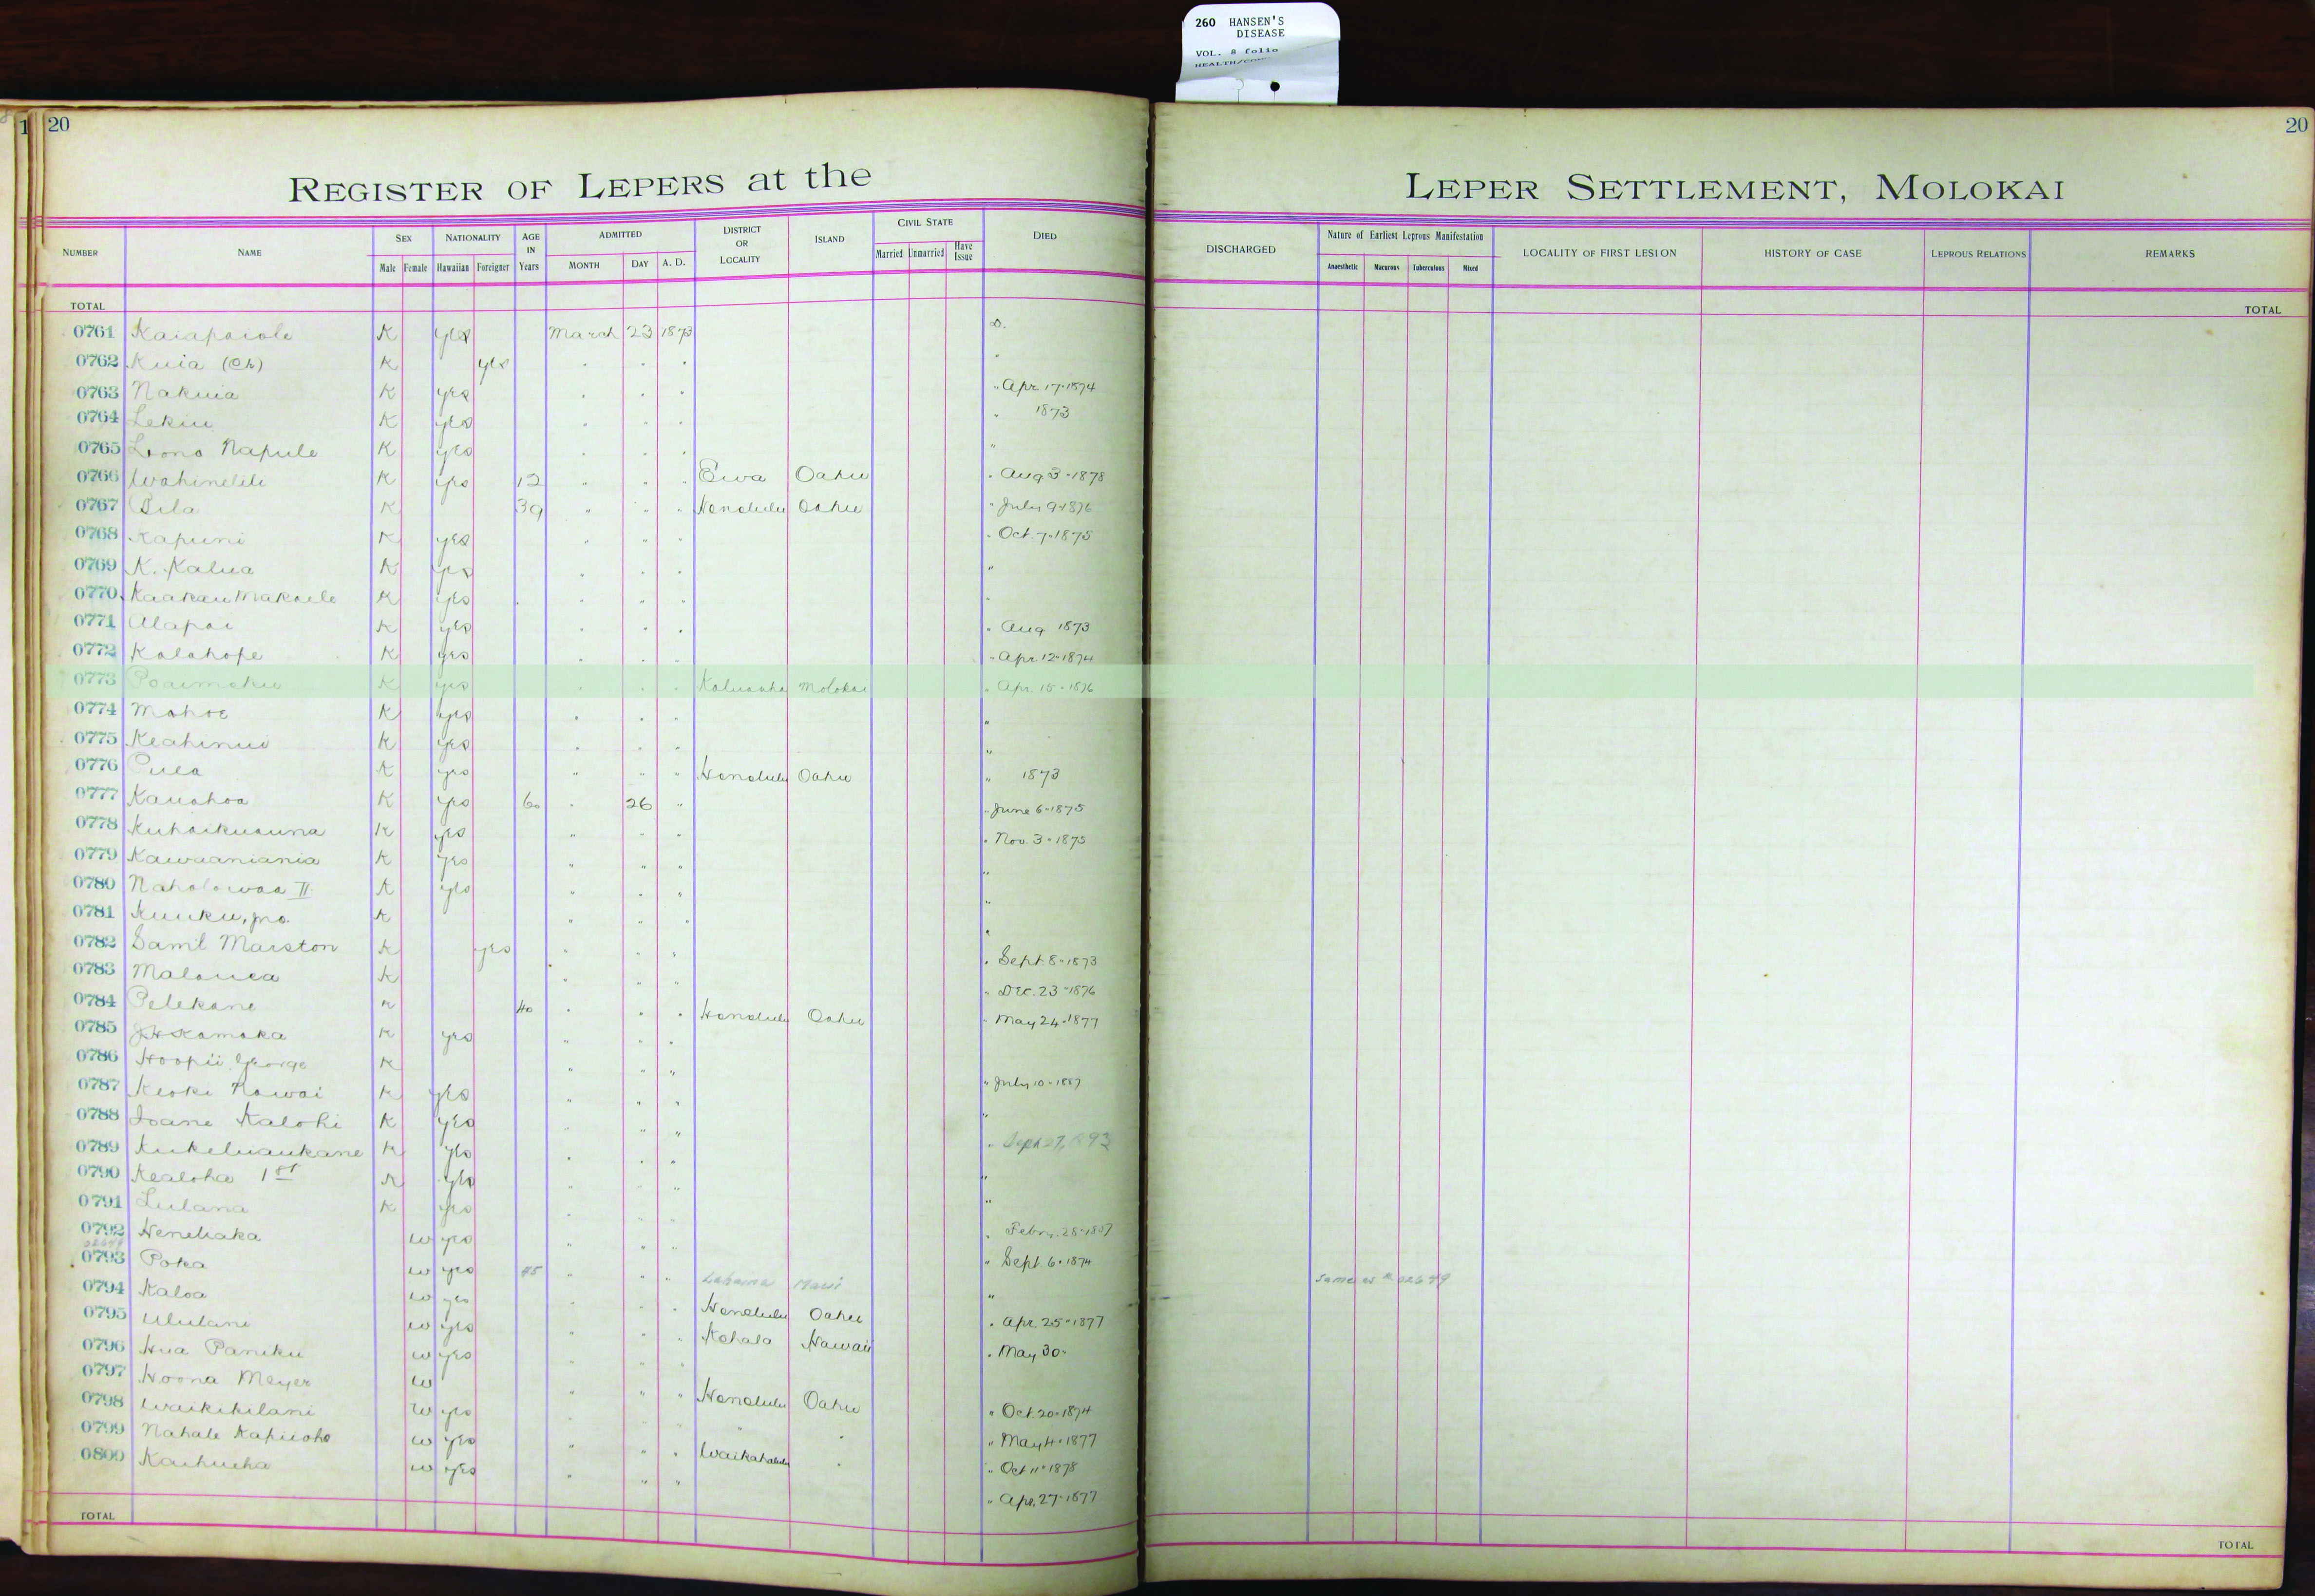 260 HANSEN'S
DISEASE
VOL. 8 folio
20
20
REGISTER OF LEPERS at the LEPER SETTLEMENT, MOLOKAI
NUMBER NAME SEX Male Female NATIONALITY Hawaiian Foreigner AGE IN Years ADMITTED MONTH DAY A. D. DISTRICT OR LOCALITY ISLAND CIVIL STATE Married Unmarried Have Issue DIED DISCHARGED Nature of Earliest Leprous Manifestation Anaesthetic Macurous Tuberculous Mixed LOCALITY OF FIRST LESION HISTORY OF CASE LEPROUS RELATIONS REMARKS
TOTAL TOTAL
0761 Kaiapaiole K yes March 23 1873 D.
0762 Kuia (Ch) K yes
0763 Nakuia K yes " Apr. 17-1874
0764 Lekiu K yes " 1873
0765 Lono Napule K yes "
0766 Wahinelili K yes 12 " " " Ewa Oahu " Aug 3-1878
0767 Pila K 39 " " " Honolulu Oahu " July 9-1876
0768 Kapuni K yes " " " " Oct. 7-1875
0769 K. Kalua K yes "
0770 Kaakau Makaele K yes "
0771 Alapai K yes " Aug 1873
0772 Kalahope K yes " Apr. 12-1874
0773 Poaimoku K yes Kaluaaha Molokai " Apr. 15-1876
0774 Mahoe K yes "
0775 Keahinui K yes "
0776 Pulea K yes " " " Honolulu Oahu " 1873
0777 Kauahoa K yes 60 " 26 " " June 6-1875
0778 Kuhaikuauna K yes " " " " Nov. 3-1875
0779 Kawaaniania K yes " " " "
0780 Naholowaa II K yes " " " "
0781 Kuuku, jno. K " " " "
0782 Saml Marston K yes " " " " Sept 8-1873
0783 Malanea K " " " " Dec. 23-1876
0784 Pelekane K 40 " " " Honolulu Oahu " May 24-1877
0785 J H Kamaka K yes " " "
0786 Hoopii George K " " " " July 10-1887
0787 Keoki Nawai K yes " " " "
0788 Ioane Kalohi K yes " " " " Sept 27, 1893
0789 Kukeluaukane K yes " " " "
0790 Kealoha 1st K yes " " " "
0791 Lulana K yes " " "
0792 Henehaka W yes " " "
0793 Poka W yes 45 " " " Lahaina Maui " Sept. 6-1874 Same as # 02649
0794 Kaloa W yes " " " Honolulu Oahu "
0795 Ululani W yes " " " Kohala Hawaii " Apr. 25-1877
0796 Hua Paniku W yes " May 30-
0797 Hoona Meyer W " " " Honolulu Oahu
0798 Waikikilani W yes " Oct. 20-1874
0799 Nahale Kapuoho W yes " " " Waikahalulu " " May 4-1877
0800 Kaihueha W yes " " " " Oct 11-1878
" Apr. 27-1877
TOTAL TOTAL